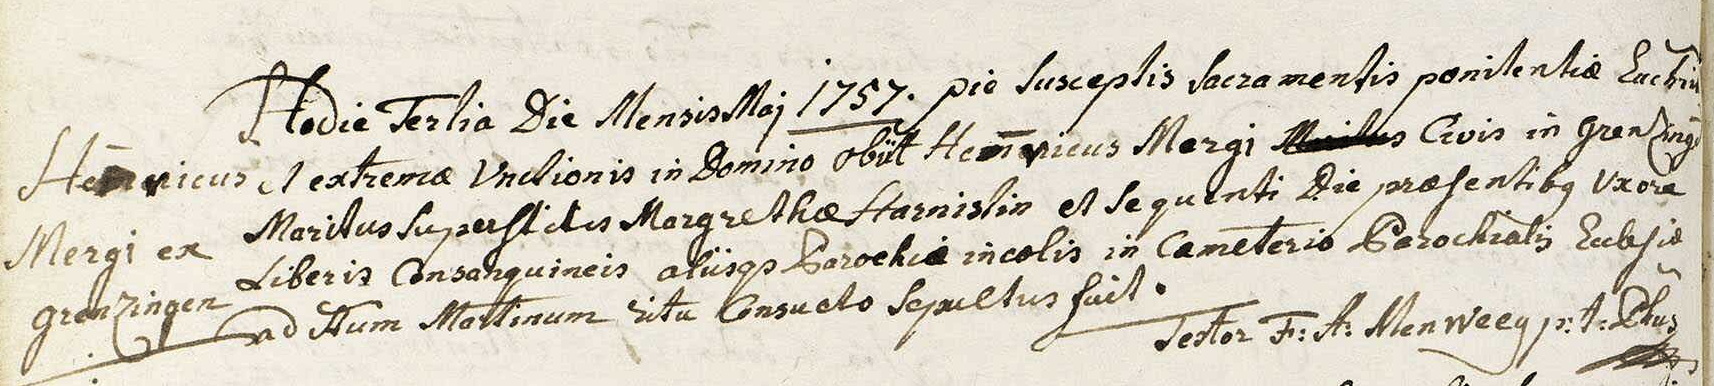 Hodie Tertia Die Mensis Maj 1757. pie susceptis sacramentis pœnitentiæ Euchris
et extremæ Unctionis in Domino obiit Henricus Mergi Civis in Grenzing
Maritus superstitis Margrethæ Harnistin et sequenti Die præsentibq Uxore
Liberis Consanguineis aliisqs Parochiæ incolis in Cæmeterio Parochialis Eccles̄iæ
ad Stum Martinum ritu Consueto sepultus fuit.
Testor F: A: Menweeg p: t: Phus
Henricus
Mergi ex
grenzingen